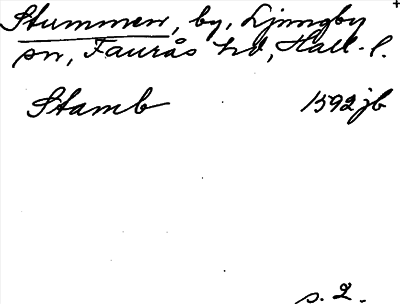 Stummen, by, Ljungby
sn, Faurås hd, Hall. l.
Stamb 1592 jb
s. 2.